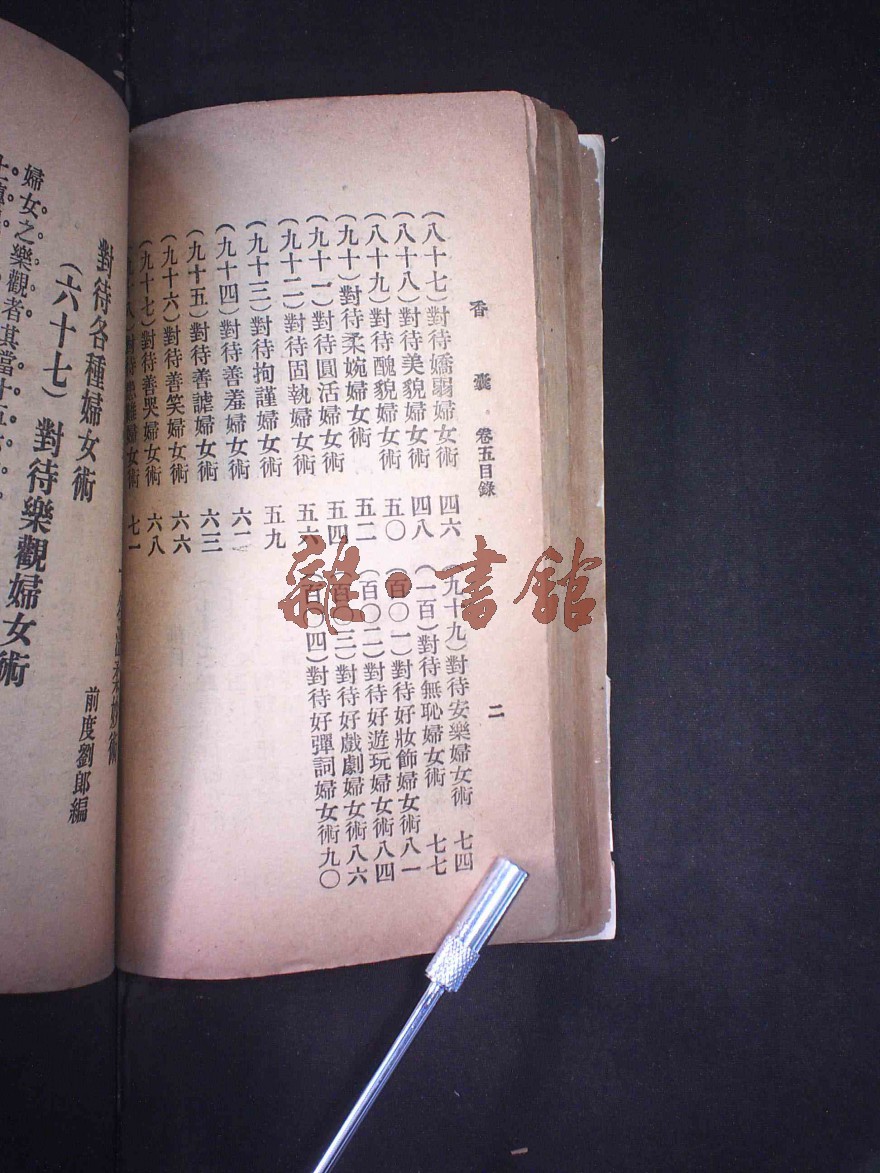 香囊 卷五目錄 二
(八十七)對待嬌弱婦女術 四六
(八十八)對待美貌婦女術 四八
(八十九)對待醜貌婦女術 五〇
(九十)對待柔婉婦女術 五二
(九十一)對待圓活婦女術 五四
(九十二)對待固執婦女術 五六
(九十三)對待拘謹婦女術 五九
(九十四)對待善羞婦女術 六二
(九十五)對待善謔婦女術 六三
(九十六)對待善笑婦女術 六六
(九十七)對待善哭婦女術 六八
對待 婦女術 七一
(九十九)對待安樂婦女術 七四
(一百)對待無恥婦女術 七七
(百〇一)對待好妝飾婦女術 八一
(百〇二)對待好遊玩婦女術 八四
(百〇三)對待好戲劇婦女術 八六
(百〇四)對待好彈詞婦女術 九〇
前度劉郎編
對待各種婦女術
(六十七)對待樂觀婦女術
婦女之樂觀者其當十五
雜·書館